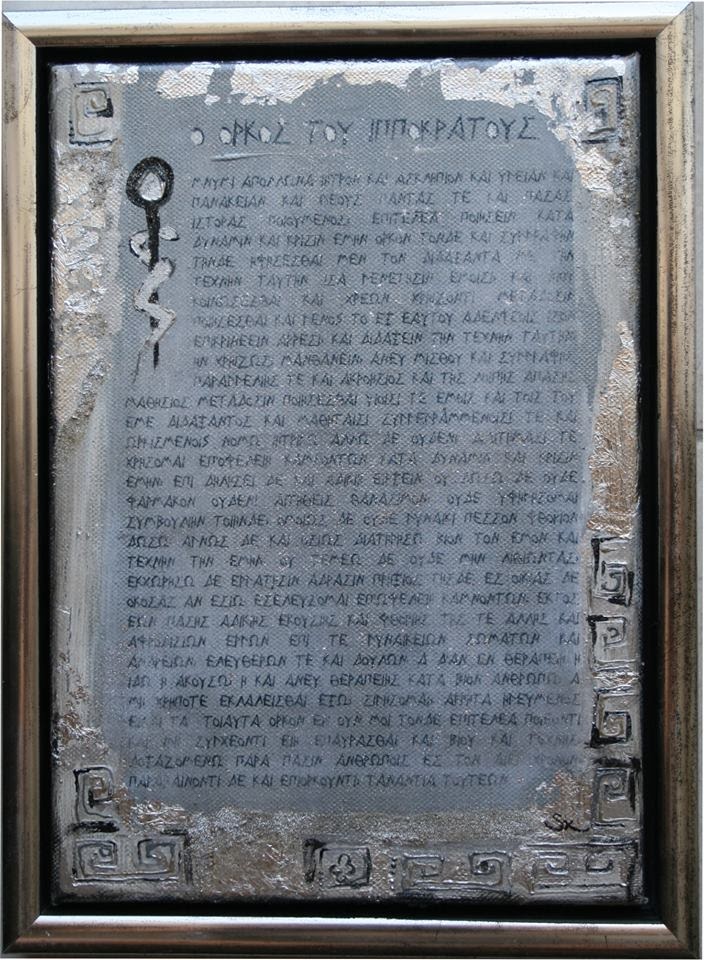 Ο ΟΡΚΟΣ ΤΟΥ ΙΠΠΟΚΡΑΤΟΥΣ
ΜΝΥΜΙ ΑΠΟΛΛΩΝΑ ΙΗΤΡΟΝ ΚΑΙ ΑΣΚΛΗΠΙΟΝ ΚΑΙ ΥΓΕΙΑΝ ΚΑΙ
ΠΑΝΑΚΕΙΑΝ ΚΑΙ ΘΕΟΥΣ ΠΑΝΤΑΣ ΤΕ ΚΑΙ ΠΑΣΑΣ
ΙΣΤΟΡΑΣ ΠΟΙΟΥΜΕΝΟΣ ΕΠΙΤΕΛΕΑ ΠΟΙΗΣΕΙΝ ΚΑΤΑ
ΔΥΝΑΜΙΝ ΚΑΙ ΚΡΙΣΙΝ ΕΜΗΝ ΟΡΚΟΝ ΤΟΝΔΕ ΚΑΙ ΣΥΓΓΡΑΦΗΝ
ΤΗΝΔΕ ΗΓΗΣΕΣΘΑΙ ΜΕΝ ΤΟΝ ΔΙΔΑΞΑΝΤΑ ΜΕ ΤΗΝ
ΤΕΧΝΗΝ ΤΑΥΤΗΝ ΙΣΑ ΓΕΝΕΤΗΣΙΝ ΕΜΟΙΣΙ ΚΑΙ
ΚΟΙΝΩΣΕΣΘΑΙ ΚΑΙ ΧΡΕΩΝ ΧΡΗΙΖΟΝΤΙ ΜΕΤΑΔΟΣΙΝ
ΠΟΙΗΣΕΣΘΑΙ ΚΑΙ ΓΕΝΟΣ ΤΟ ΕΞ ΕΑΥΤΟΥ ΑΔΕΛΦΟΙΣ ΙΣΟΝ
ΕΠΙΚΡΙΝΕΕΙΝ ΑΡΡΕΣΙ ΚΑΙ ΔΙΔΑΞΕΙΝ ΤΗΝ ΤΕΧΝΗΝ ΤΑΥΤΗΝ
ΗΝ ΧΡΗΙΖΩΣΙ ΜΑΝΘΑΝΕΙΝ ΑΝΕΥ ΜΙΣΘΟΥ ΚΑΙ ΣΥΓΓΡΑΦΗΣ
ΠΑΡΑΓΓΕΛΙΗΣ ΤΕ ΚΑΙ ΑΚΡΟΗΣΙΟΣ ΚΑΙ ΤΗΣ ΛΟΙΠΗΣ ΑΠΑΣΗΣ
ΜΑΘΗΣΙΟΣ ΜΕΤΑΔΟΣΙΝ ΠΟΙΗΣΕΣΘΑΙ ΥΙΟΙΣΙ ΤΕ ΕΜΟΙΣ ΚΑΙ ΤΟΙΣ ΤΟΥ
ΕΜΕ ΔΙΔΑΞΑΝΤΟΣ ΚΑΙ ΜΑΘΗΤΑΙΣΙ ΣΥΓΓΕΓΡΑΜΜΕΝΟΙΣΙ ΤΕ ΚΑΙ
ΩΡΚΙΣΜΕΝΟΙΣ ΝΟΜΩ ΙΗΤΡΙΚΩ ΑΛΛΩ ΔΕ ΟΥΔΕΝΙ ΔΙΑΙΤΗΜΑΣΙ ΤΕ
ΧΡΗΣΟΜΑΙ ΕΠΩΦΕΛΕΙΗ ΚΑΜΝΟΝΤΩΝ ΚΑΤΑ ΔΥΝΑΜΙΝ ΚΑΙ ΚΡΙΣΙΝ
ΕΜΗΝ ΕΠΙ ΔΗΛΗΣΕΙ ΔΕ ΚΑΙ ΑΔΙΚΙΗ ΕΙΡΞΕΙΝ ΟΥ ΔΩΣΩ ΔΕ ΟΥΔΕ
ΦΑΡΜΑΚΟΝ ΟΥΔΕΝΙ ΑΙΤΗΘΕΙΣ ΘΑΝΑΣΙΜΟΝ ΟΥΔΕ ΥΦΗΓΗΣΟΜΑΙ
ΣΥΜΒΟΥΛΙΗΝ ΤΟΙΗΝΔΕ ΟΜΟΙΩΣ ΔΕ ΟΥΔΕ ΓΥΝΑΙΚΙ ΠΕΣΣΟΝ ΦΘΟΡΙΟΝ
ΔΩΣΩ ΑΓΝΩΣ ΔΕ ΚΑΙ ΟΣΙΩΣ ΔΙΑΤΗΡΗΣΩ ΒΙΟΝ ΤΟΝ ΕΜΟΝ ΚΑΙ
ΤΕΧΝΗΝ ΤΗΝ ΕΜΗΝ ΟΥ ΤΕΜΕΩ ΔΕ ΟΥΔΕ ΜΗΝ ΛΙΘΙΩΝΤΑΣ
ΕΚΧΩΡΗΣΩ ΔΕ ΕΡΓΑΤΗΣΙΝ ΑΔΡΑΣΙΝ ΠΡΗΞΙΟΣ ΤΗΣΔΕ ΕΣ ΟΙΚΙΑΣ ΔΕ
ΟΚΟΣΑΣ ΑΝ ΕΣΙΩ ΕΣΕΛΕΥΣΟΜΑΙ ΕΠ ΩΦΕΛΕΙΗ ΚΑΜΝΟΝΤΩΝ ΕΚΤΟΣ
ΕΩΝ ΠΑΣΗΣ ΑΔΙΚΙΗΣ ΕΚΟΥΣΙΗΣ ΚΑΙ ΦΘΟΡΙΗΣ ΤΗΣ ΤΕ ΑΛΛΗΣ ΚΑΙ
ΑΦΡΟΔΙΣΙΩΝ ΕΡΓΩΝ ΕΠΙ ΤΕ ΓΥΝΑΙΚΕΙΩΝ ΣΩΜΑΤΩΝ ΚΑΙ
ΑΝΔΡΕΙΩΝ ΕΛΕΥΘΕΡΩΝ ΤΕ ΚΑΙ ΔΟΥΛΩΝ Α Δ ΑΝ ΕΝ ΘΕΡΑΠΕΙΗ Η
ΙΔΩ Η ΑΚΟΥΣΩ Η ΚΑΙ ΑΝΕΥ ΘΕΡΑΠΕΙΗΣ ΚΑΤΑ ΒΙΟΝ ΑΝΘΡΩΠΩΝ Α
ΜΗ ΧΡΗ ΠΟΤΕ ΕΚΛΑΛΕΙΣΘΑΙ ΕΞΩ ΣΙΓΗΣΟΜΑΙ ΑΡΡΗΤΑ ΗΓΕΥΜΕΝΟΣ
ΕΙΝΑΙ ΤΑ ΤΟΙΑΥΤΑ ΟΡΚΟΝ ΕΝ ΟΥΝ ΜΟΙ ΤΟΝΔΕ ΕΠΙΤΕΛΕΑ ΠΟΙΕΟΝΤΙ
ΚΑΙ ΜΗ ΣΥΓΧΕΟΝΤΙ ΕΙΗ ΕΠΑΥΡΑΣΘΑΙ ΚΑΙ ΒΙΟΥ ΚΑΙ ΤΕΧΝΗΣ
ΔΟΞΑΖΟΜΕΝΩ ΠΑΡΑ ΠΑΣΙΝ ΑΝΘΡΩΠΟΙΣ ΕΣ ΤΟΝ ΑΙΕΙ ΧΡΟΝΟΝ
ΠΑΡΑΒΑΙΝΟΝΤΙ ΔΕ ΚΑΙ ΕΠΙΟΡΚΟΥΝΤΙ ΤΑΝΑΝΤΙΑ ΤΟΥΤΕΩΝ
SX